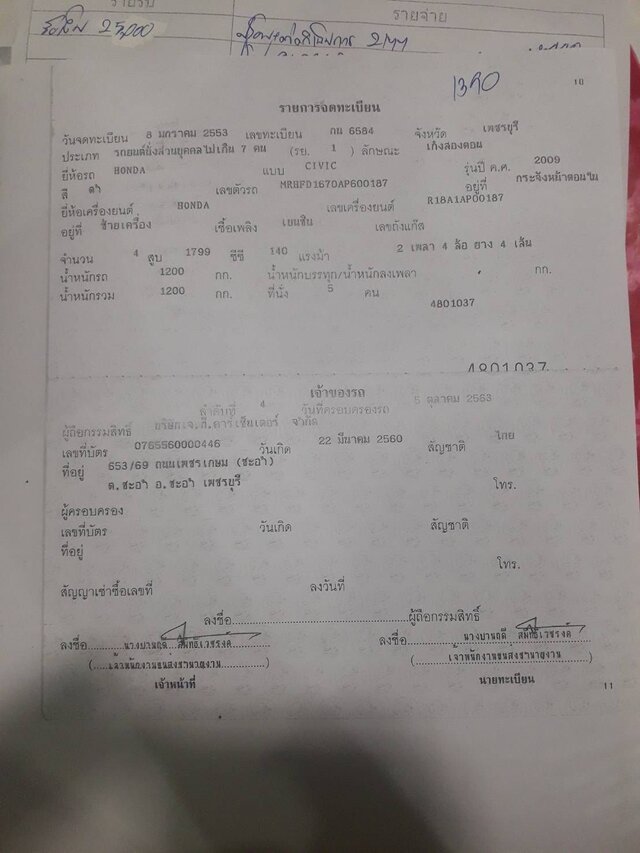 รายรับ รายจ่าย
25,000
1390
10
รายการจดทะเบียน
วันจดทะเบียน 8 มกราคม 2553 เลขทะเบียน กน 6584 จังหวัด เพชรบุรี
ประเภท รถยนต์นั่งส่วนบุคคลไม่เกิน 7 คน (รย. 1 ) ลักษณะ เก๋งสองตอน
ยี่ห้อรถ HONDA แบบ CIVIC รุ่นปี ค.ศ. 2009
สี ดำ เลขตัวรถ MRHFD1670AP600187 อยู่ที่ กระจังหน้าตอนใน
ยี่ห้อเครื่องยนต์ HONDA เลขเครื่องยนต์ R18A1AP00187
อยู่ที่ ซ้ายเครื่อง เชื้อเพลิง เบนซิน เลขถังแก๊ส
จำนวน 4 สูบ 1799 ซีซี 140 แรงม้า 2 เพลา 4 ล้อ ยาง 4 เส้น
น้ำหนักรถ 1200 กก. น้ำหนักบรรทุก/น้ำหนักลงเพลา กก.
น้ำหนักรวม 1200 กก. ที่นั่ง 5 คน
4801037
4801037
เจ้าของรถ
ลำดับที่ 4 วันที่ครอบครองรถ 5 ตุลาคม 2563
ผู้ถือกรรมสิทธิ์ บริษัทเจ.พี.คาร์เซ็นเตอร์ จำกัด
เลขที่บัตร 0765560000446 วันเกิด 22 มีนาคม 2560 สัญชาติ ไทย
ที่อยู่ 653/69 ถนนเพชรเกษม (ชะอำ)
ต.ชะอำ อ.ชะอำ เพชรบุรี โทร.
ผู้ครอบครอง
เลขที่บัตร วันเกิด สัญชาติ
ที่อยู่
โทร.
สัญญาเช่าซื้อเลขที่ ลงวันที่
ลงชื่อ ผู้ถือกรรมสิทธิ์
ลงชื่อ นางบานฤดี ลงชื่อ นางบานฤดี
(เจ้าพนักงานขนส่งชำนาญงาน) (เจ้าพนักงานขนส่งชำนาญงาน)
เจ้าหน้าที่ นายทะเบียน
11